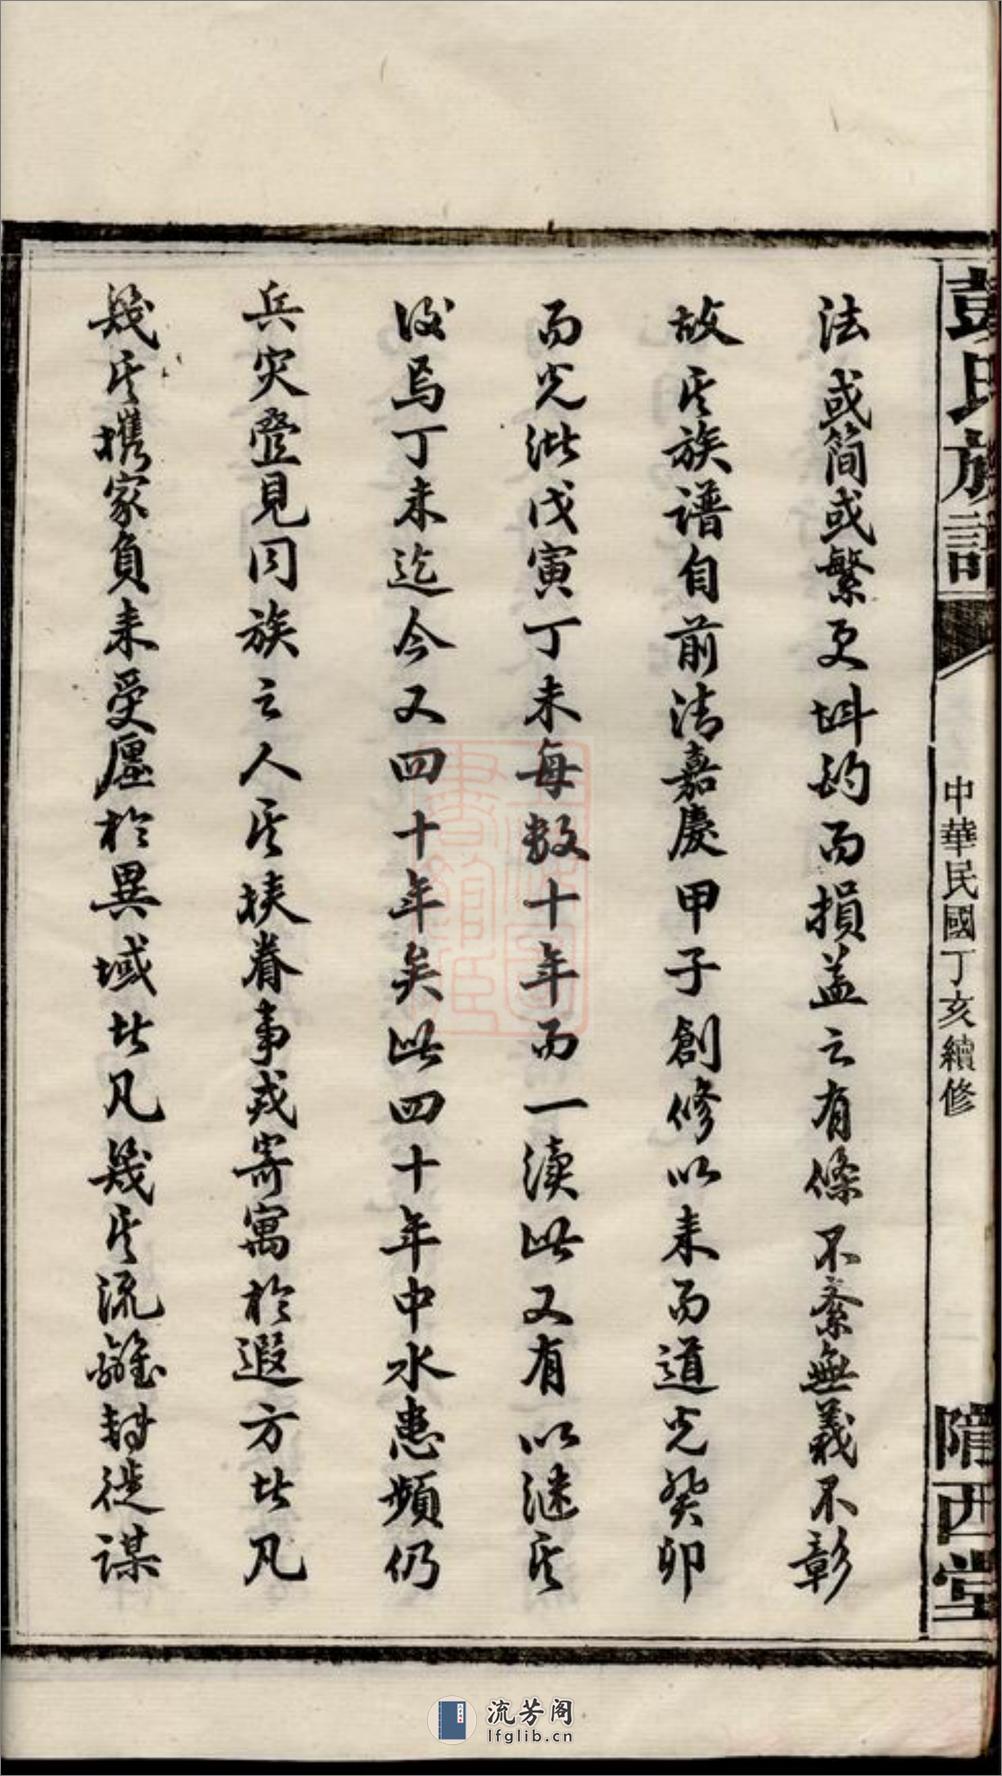 彭氏族譜
中華民國丁亥續修
隴西堂
法或简或繁更斟酌而損益之有條不紊無義不彰
故其族譜自前清嘉慶甲子創修以来而道光癸卯
而光洪戊寅丁未每数十年而一续此又有以继其
後焉丁未迄今又四十年矣此四十年中水患頻仍
兵灾叠見同族之人其挟眷事或寄寓於遐方者凡
幾其攜家負耒受廛於異域者凡幾其流離轉徙謀
流芳阁
lfglib.cn